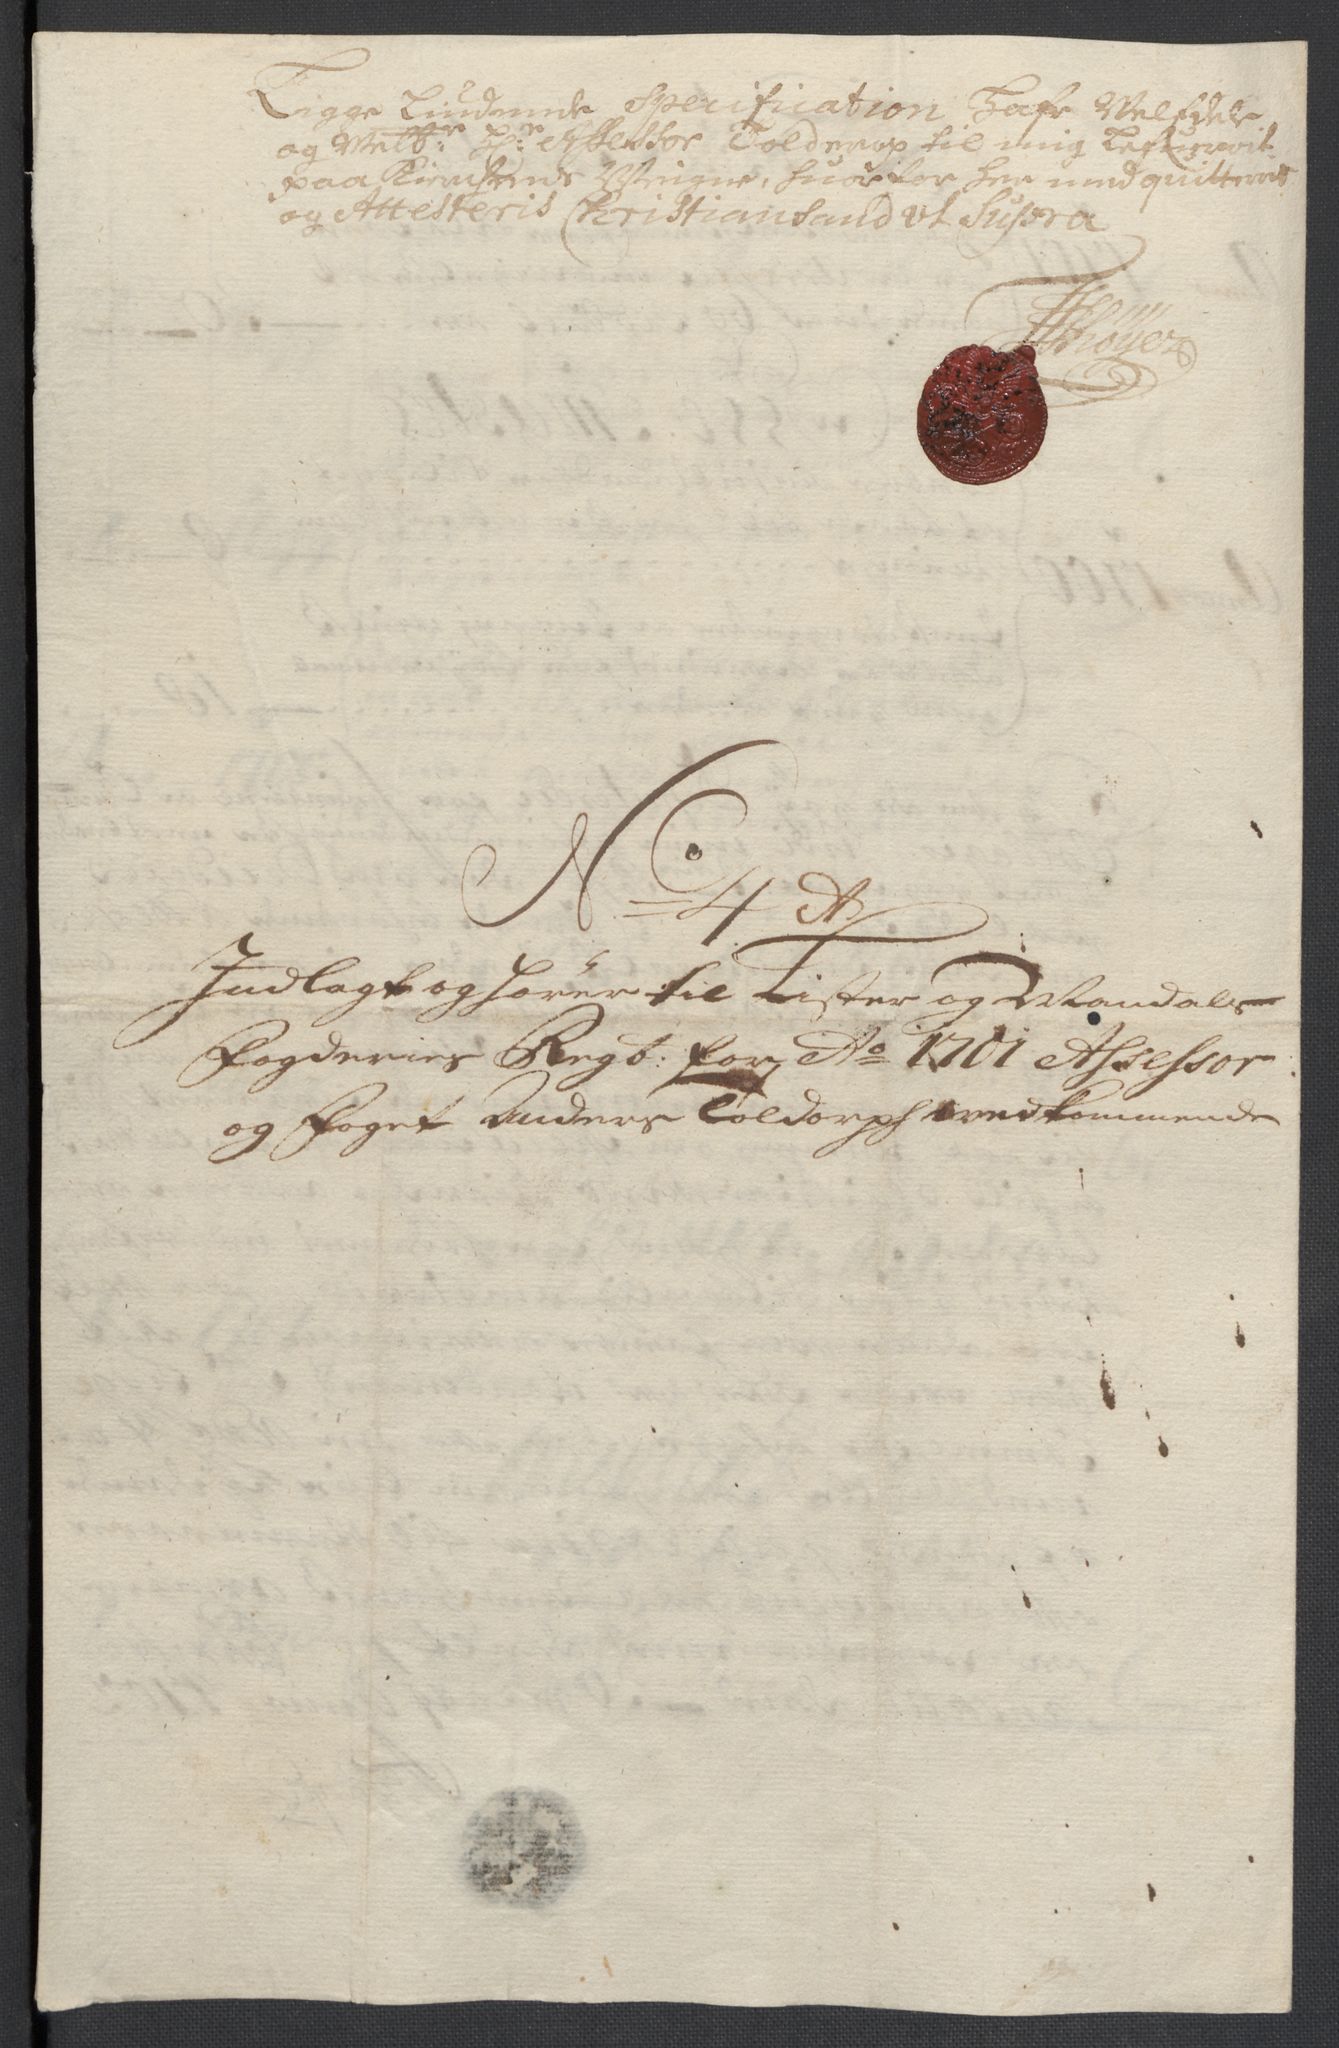 Ligge Liudende Specification hafr Velædele
og Velb:r Hr: Assessor Tolderop til mig lefuerit
paa Kierchens Veigne, huor for her med quitteris
og Attesteris Christiansand ut Supra
Thoyer
No 4 A
Indlagt og hører til Lister og Mandals
Fogderies Regb: for Ao 1701 Assessor
og Foget Anders Toldorph vedkommende